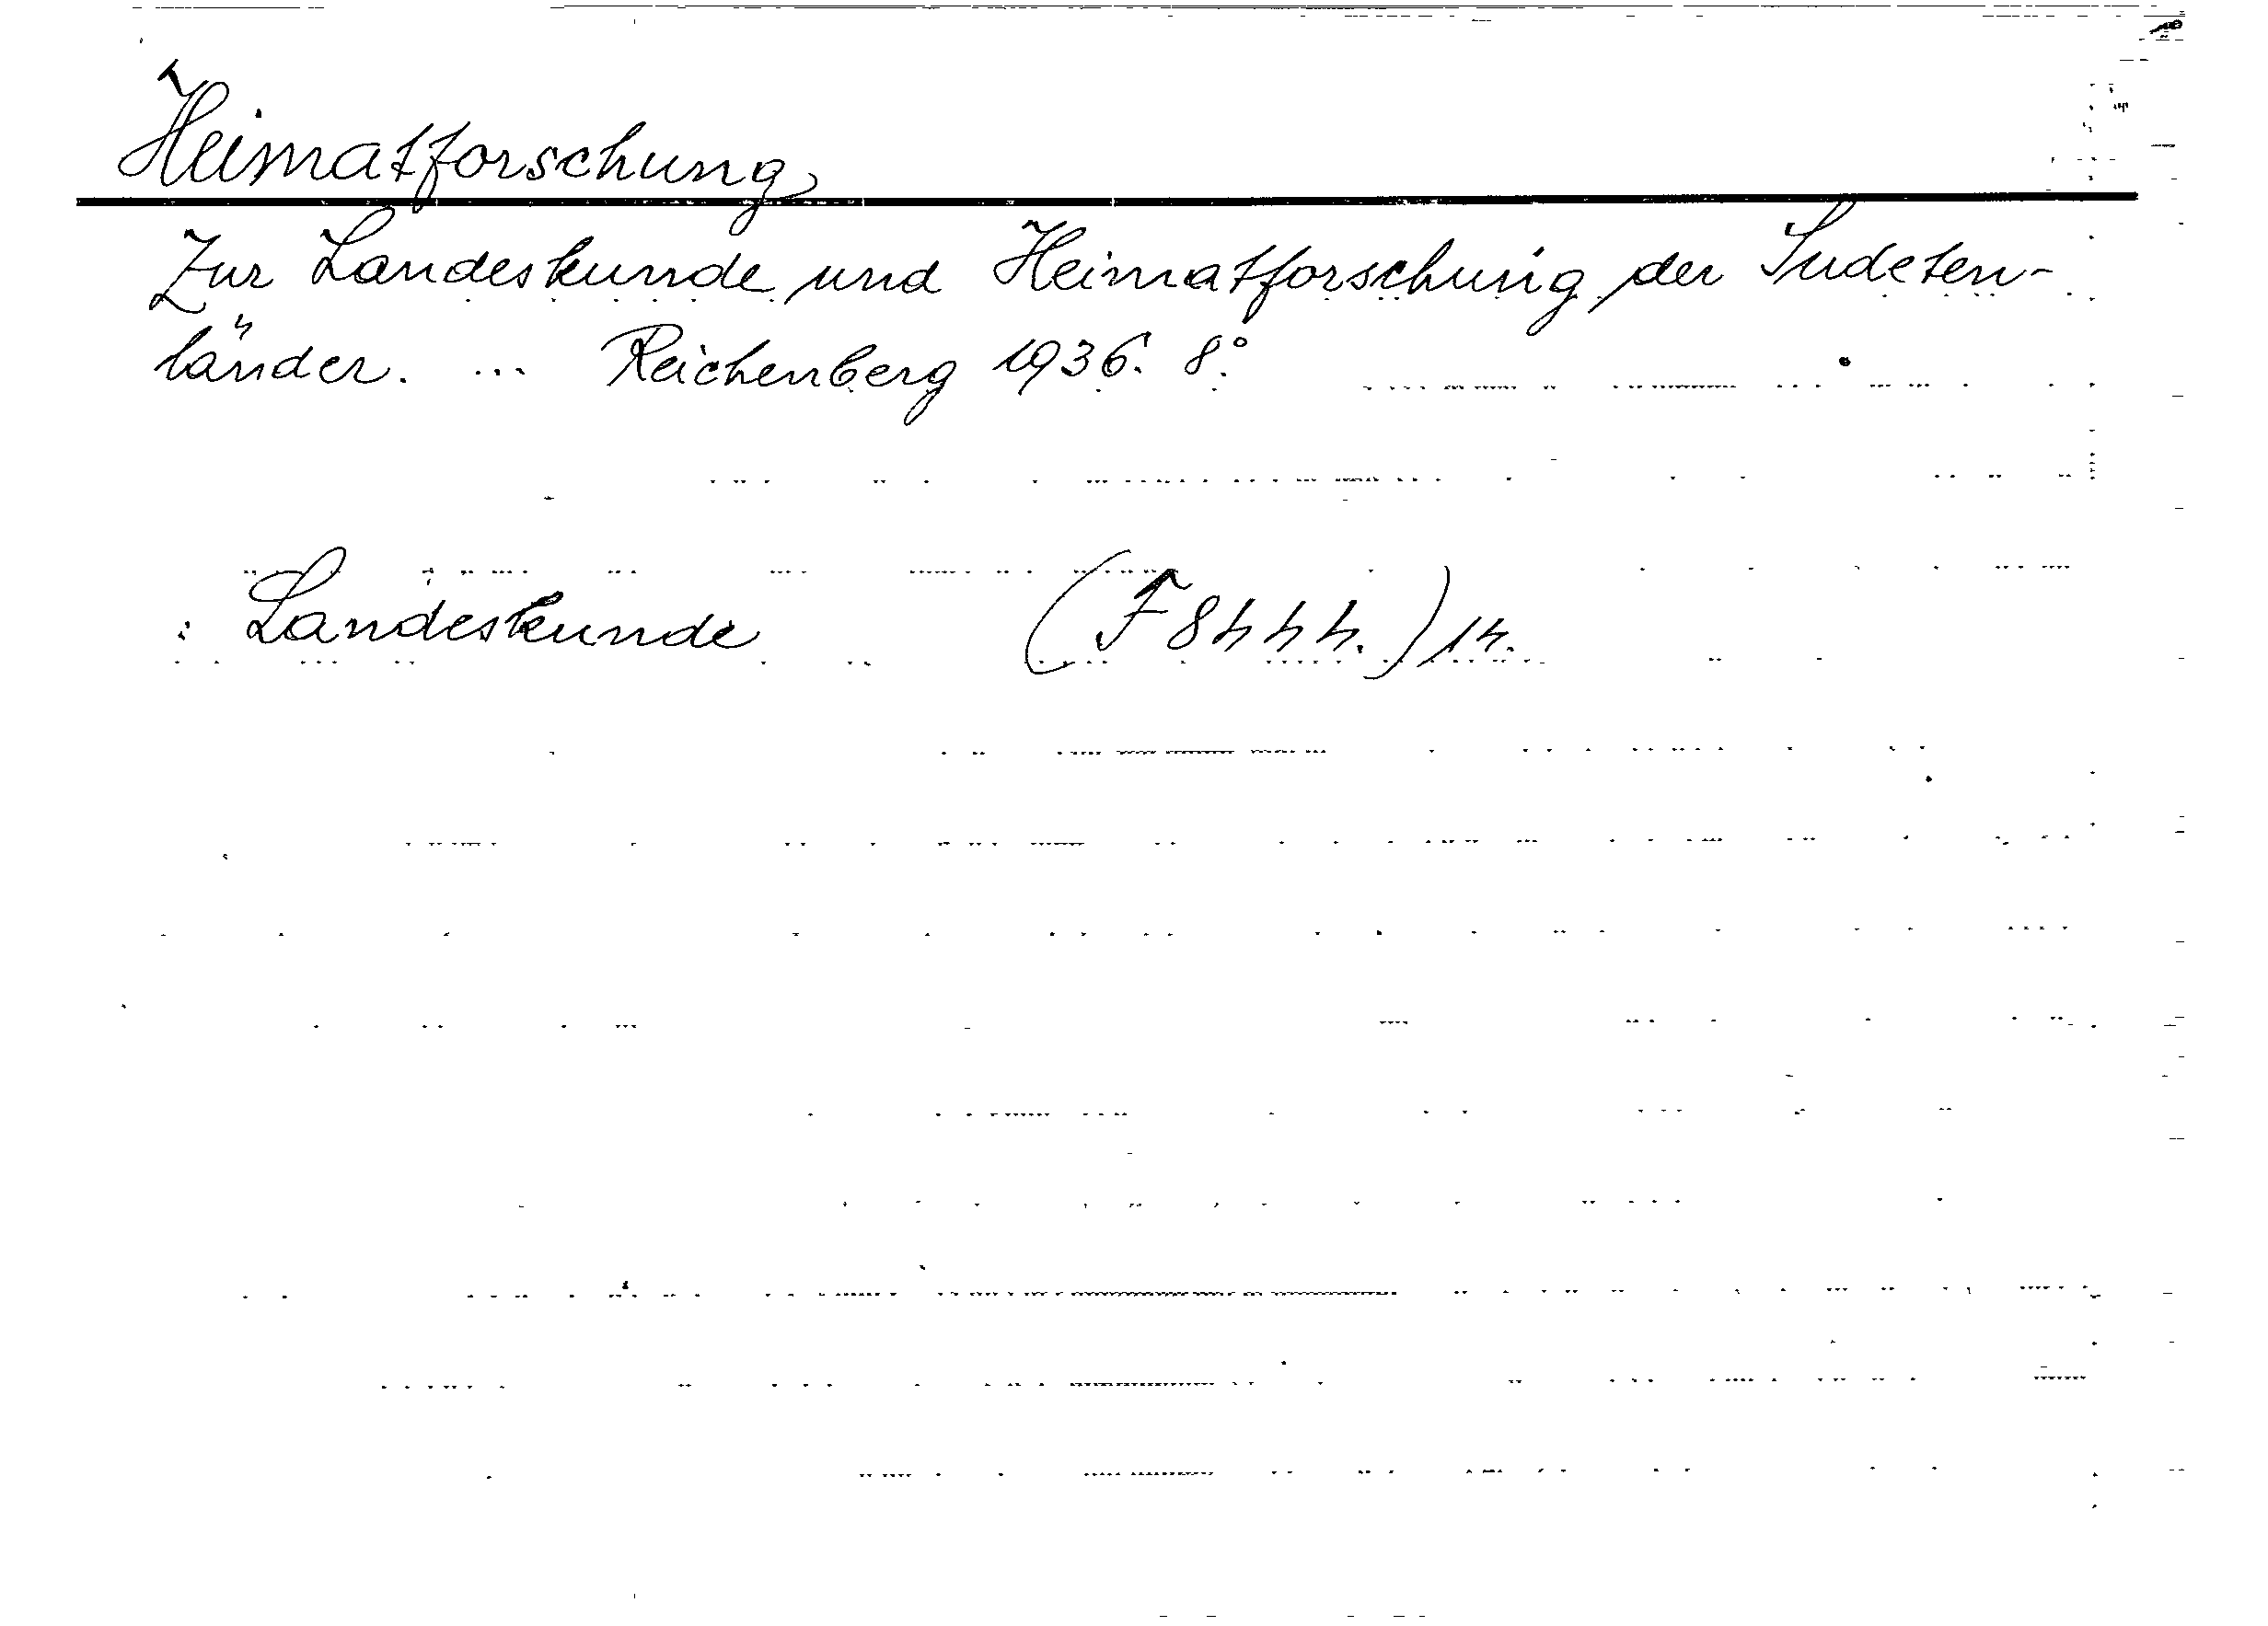 Heimatforschung
Zur Landeskunde und Heimatforschung der Sudeten-
länder. ... Reichenberg 1936. 8°.
: Landeskunde (F 8444.) 14.